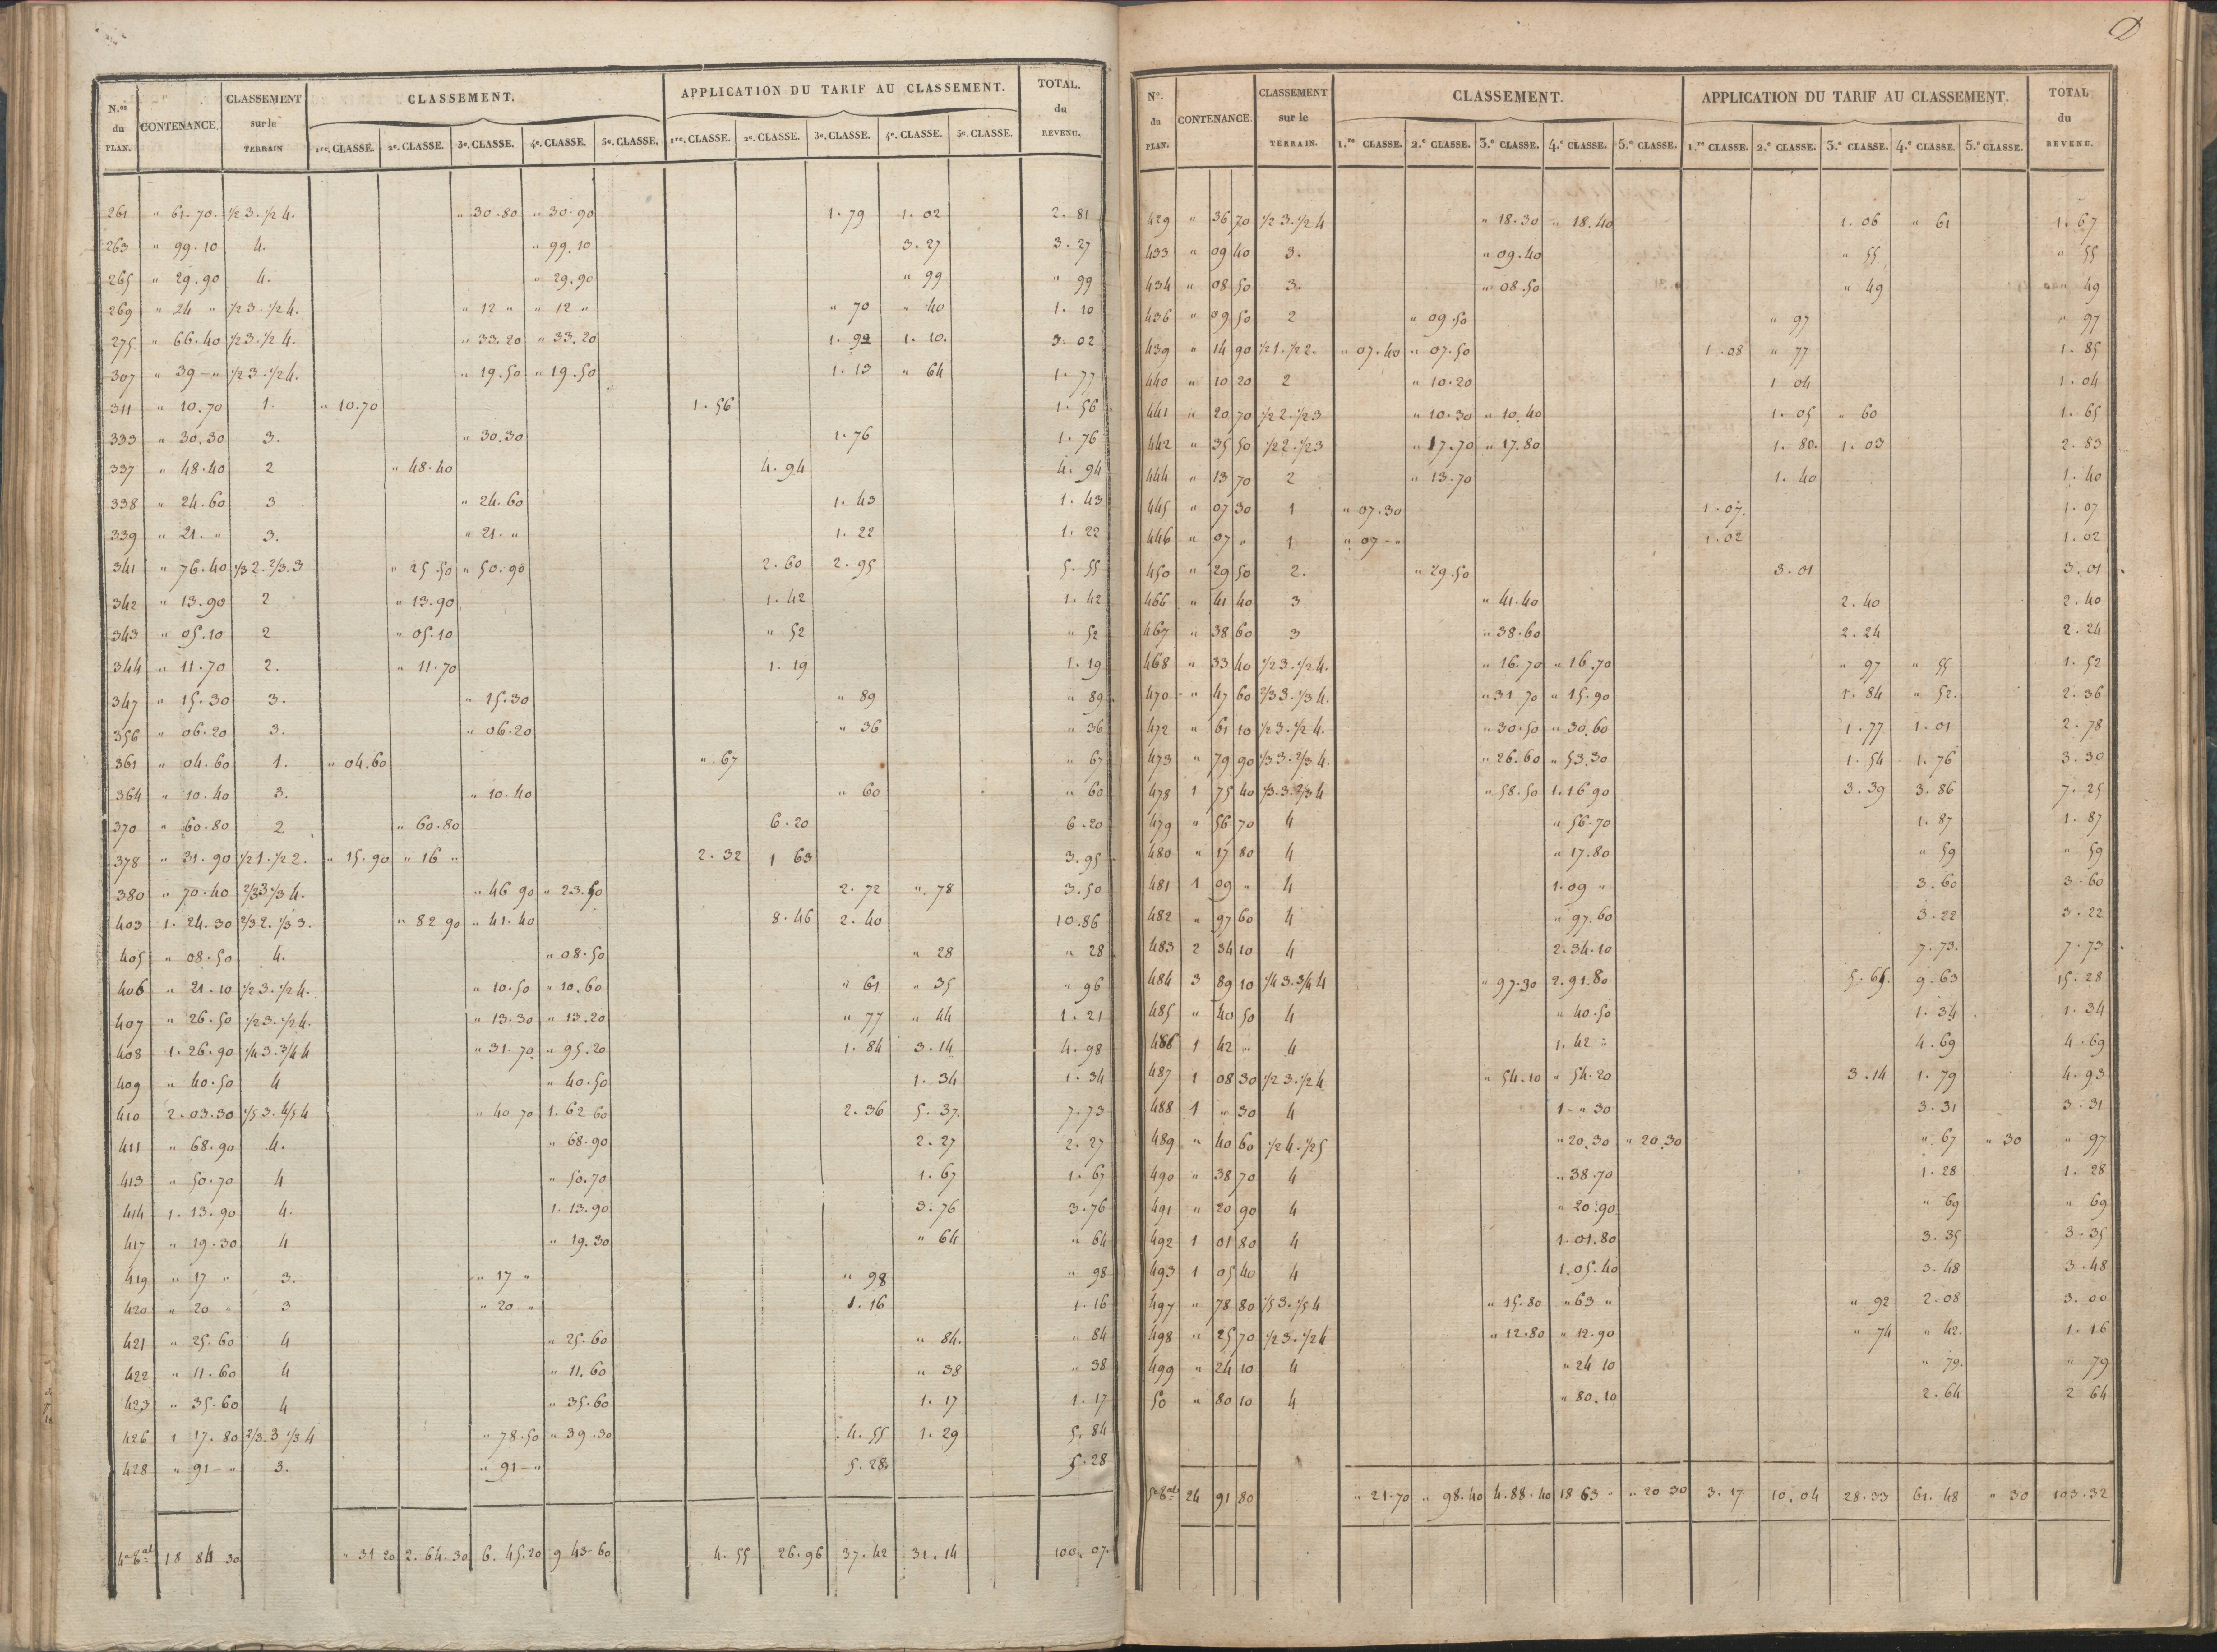 N.os du PLAN. CONTENANCE. CLASSEMENT sur le TERRAIN CLASSEMENT. APPLICATION DU TARIF AU CLASSEMENT. TOTAL. du REVENU.
1re. CLASSE. 2e. CLASSE. 3e. CLASSE. 4e. CLASSE. 5e. CLASSE. 1re. CLASSE. 2e. CLASSE. 3e. CLASSE. 4e. CLASSE. 5e. CLASSE.
261 " 61.70. 1/2 3. 1/2 4. " 30.80 " 30.90 1.79 1.02 2.81
263 " 99.10 4. " 99.10 3.27 3.27
265 " 29.90 4. " 29.90 " 99 " 99
269 " 24 " 1/2 3. 1/2 4. " 12 " " 12 " " 70 " 40 1.10
275 " 66.40 1/2 3. 1/2 4. " 33.20 " 33.20 1.92 1.10. 3.02
307 " 39 - " 1/2 3. 1/2 4. " 19.50 " 19.50 1.13 " 64 1.77
311 " 10.70 1. " 10.70 1.56 1.56
333 " 30.30 3. " 30.30 1.76 1.76
337 " 48.40 2 " 48.40 4.94 4.94
338 " 24.60 3 " 24.60 1.43 1.43
339 " 21. " 3. " 21. " 1.22 1.22
341 " 76.40 1/3 2. 2/3. 3 " 25.50 " 50.90 2.60 2.95 5.55
342 " 13.90 2 " 13.90 1.42 1.42
343 " 05.10 2 " 05.10 " 52 " 52
344 " 11.70 2. " 11.70 1.19 1.19
347 " 15.30 3. " 15.30 " 89 " 89
356 " 06.20 3. " 06.20 " 36 " 36
361 " 04.60 1. " 04.60 ". 67 " 67
364 " 10.40 3. " 10.40 " 60 " 60
370 " 60.80 2 " 60.80 6.20 6.20
378 " 31.90 1/2 1. 1/2 2. " 15.90 " 16 " 2.32 1 63 3.95
380 " 70.40 2/3 3 1/3 4. " 46 90 " 23.50 2.72 ". 78 3.50
403 1.24.30 2/3 2. 1/3 3. " 82 90 " 41.40 8.46 2.40 10.86
405 " 08.50 4. " 08.50 " 28 " 28
406 " 21.10 1/2 3. 1/2 4. " 10.50 " 10.60 " 61 " 35 " 96
407 " 26.50 1/2 3. 1/2 4. " 13.30 " 13.20 " 77 " 44 1.21
408 1.26.90 1/4 3. 3/4 4 " 31.70 " 95.20 1.84 3.14 4.98
409 " 40.50 4 " 40.50 1.34 1.34
410 2.03.30 1/5 3. 4/5 4 " 40 70 1.62 60 2.36 5.37. 7.73
411 " 68.90 4. " 68.90 2.27 2.27
413 " 50.70 4 " 50.70 1.67 1.67
414 1.13.90 4. 1.13.90 3.76 3.76
417 " 19.30 4 " 19.30 " 64 " 64
419 " 17 " 3. " 17 " " 98 " 98
420 " 20 " 3 " 20 " 1.16 1.16
421 " 25.60 4 " 25.60 " 84. " 84
422 " 11.60 4 " 11.60 " 38 " 38
423 " 35.60 4 " 35.60 1.17 1.17
426 1 17.80 2/3. 3 1/3 4 " 78.50 " 39.30 4.55 1.29 5.84
428 " 91 - " 3. " 91 - " 5.28 5.28
18 84 30 " 31 20 2.64.30 6.45.20 9 43.60 4.55 26.96 37.42 31.14 100.07.
No. du PLAN. CONTENANCE. CLASSEMENT sur le TERRAIN. CLASSEMENT. APPLICATION DU TARIF AU CLASSEMENT. TOTAL du REVENU.
1.re CLASSE. 2.e CLASSE. 3.e CLASSE. 4.e CLASSE. 5.e CLASSE. 1.re CLASSE. 2.e CLASSE. 3.e CLASSE. 4.e CLASSE. 5.e CLASSE.
429 " 36 70 1/2 3. 1/2 4 " 18.30 " 18.40 1.06 " 61 1.67
433 " 09 40 3. " 09.40 " 55 " 55
434 " 08 50 3. " 08.50 " 49 " 49
436 " 09 50 2 " 09.50 " 97 " 97
439 " 14 90 1/2 1. 1/2 2. " 07.40 " 07.50 1.08 " 77 1.85
440 " 10 20 2 " 10.20 1 04 1.04
441 " 20 70 1/2 2. 1/2 3 " 10.30 " 10.40 1.05 " 60 1.65
442 " 35 50 1/2 2. 1/2 3 " 17.70 " 17.80 1.80. 1.03 2.83
444 " 13 70 2 " 13.70 1.40 1.40
445 " 07 30 1 " 07.30 1.07. 1.07
446 " 07 " 1 " 07 - " 1.02 1.02
450 " 29 50 2. " 29.50 3.01 3.01
466 " 41 40 3 " 41.40 2.40 2.40
467 " 38 60 3 " 38.60 2.24 2.24
468 " 33 40 1/2 3. 1/2 4. " 16.70 " 16.70 " 97 " 55 1.52
470 " 47 60 2/3 3. 1/3 4. " 31 70 " 15.90 1.84 " 52. 2.36
472 " 61 10 1/2 3. 1/2 4. " 30.50 " 30.60 1.77 1.01 2.78
473 " 79 90 1/3 3. 2/3 4. " 26.60 " 53.30 1.54 1.76 3.30
478 1 75 40 1/3. 3. 2/3 4 " 58.50 1.16 90 3.39 3.86 7.25
479 " 56 70 4 " 56.70 1.87 1.87
480 " 17 80 4 " 17.80 " 59 " 59
481 1 09 " 4 1.09 " 3.60 3.60
482 " 97 60 4 " 97.60 3.22 3.22
483 2 34 10 4 2.34.10 7.73. 7.73
484 3 89 10 1/4 3. 3/4 4 " 97.30 2.91.80 5.65. 9.63 15.28
485 " 40 50 4 " 40.50 1.34 1.34
486 1 42 " 4 1.42 " 4.69 4.69
487 1 08 30 1/2 3. 1/2 4 " 54.10 " 54.20 3.14 1.79 4.93
488 1 " 30 4 1 - " 30 3.31 3.31
489 " 40 60 1/2 4. 1/2 5 " 20.30 " 20.30 ". 67 " 30 " 97
490 " 38 70 4 " 38.70 1.28 1.28
491 " 20 90 4 " 20.90 " 69 " 69
492 1 01 80 4 1.01.80 3.35 3.35
493 1 05 40 4 1.05.40 3.48 3.48
497 " 78 80 1/5 3. 4/5 4 " 15.80 " 63 " " 92 2.08 3.00
498 " 25 70 1/2 3. 1/2 4 " 12.80 " 12.90 " 74 " 42. 1.16
499 " 24 10 4 " 24 10 " 79. " 79
50 " 80 10 4 " 80.10 2.64 2 64
24 91 80 " 21.70 " 98.40 4.88.40 18 63 " " 20 30 3.17 10.04 28.33 61.48 " 30 103.32